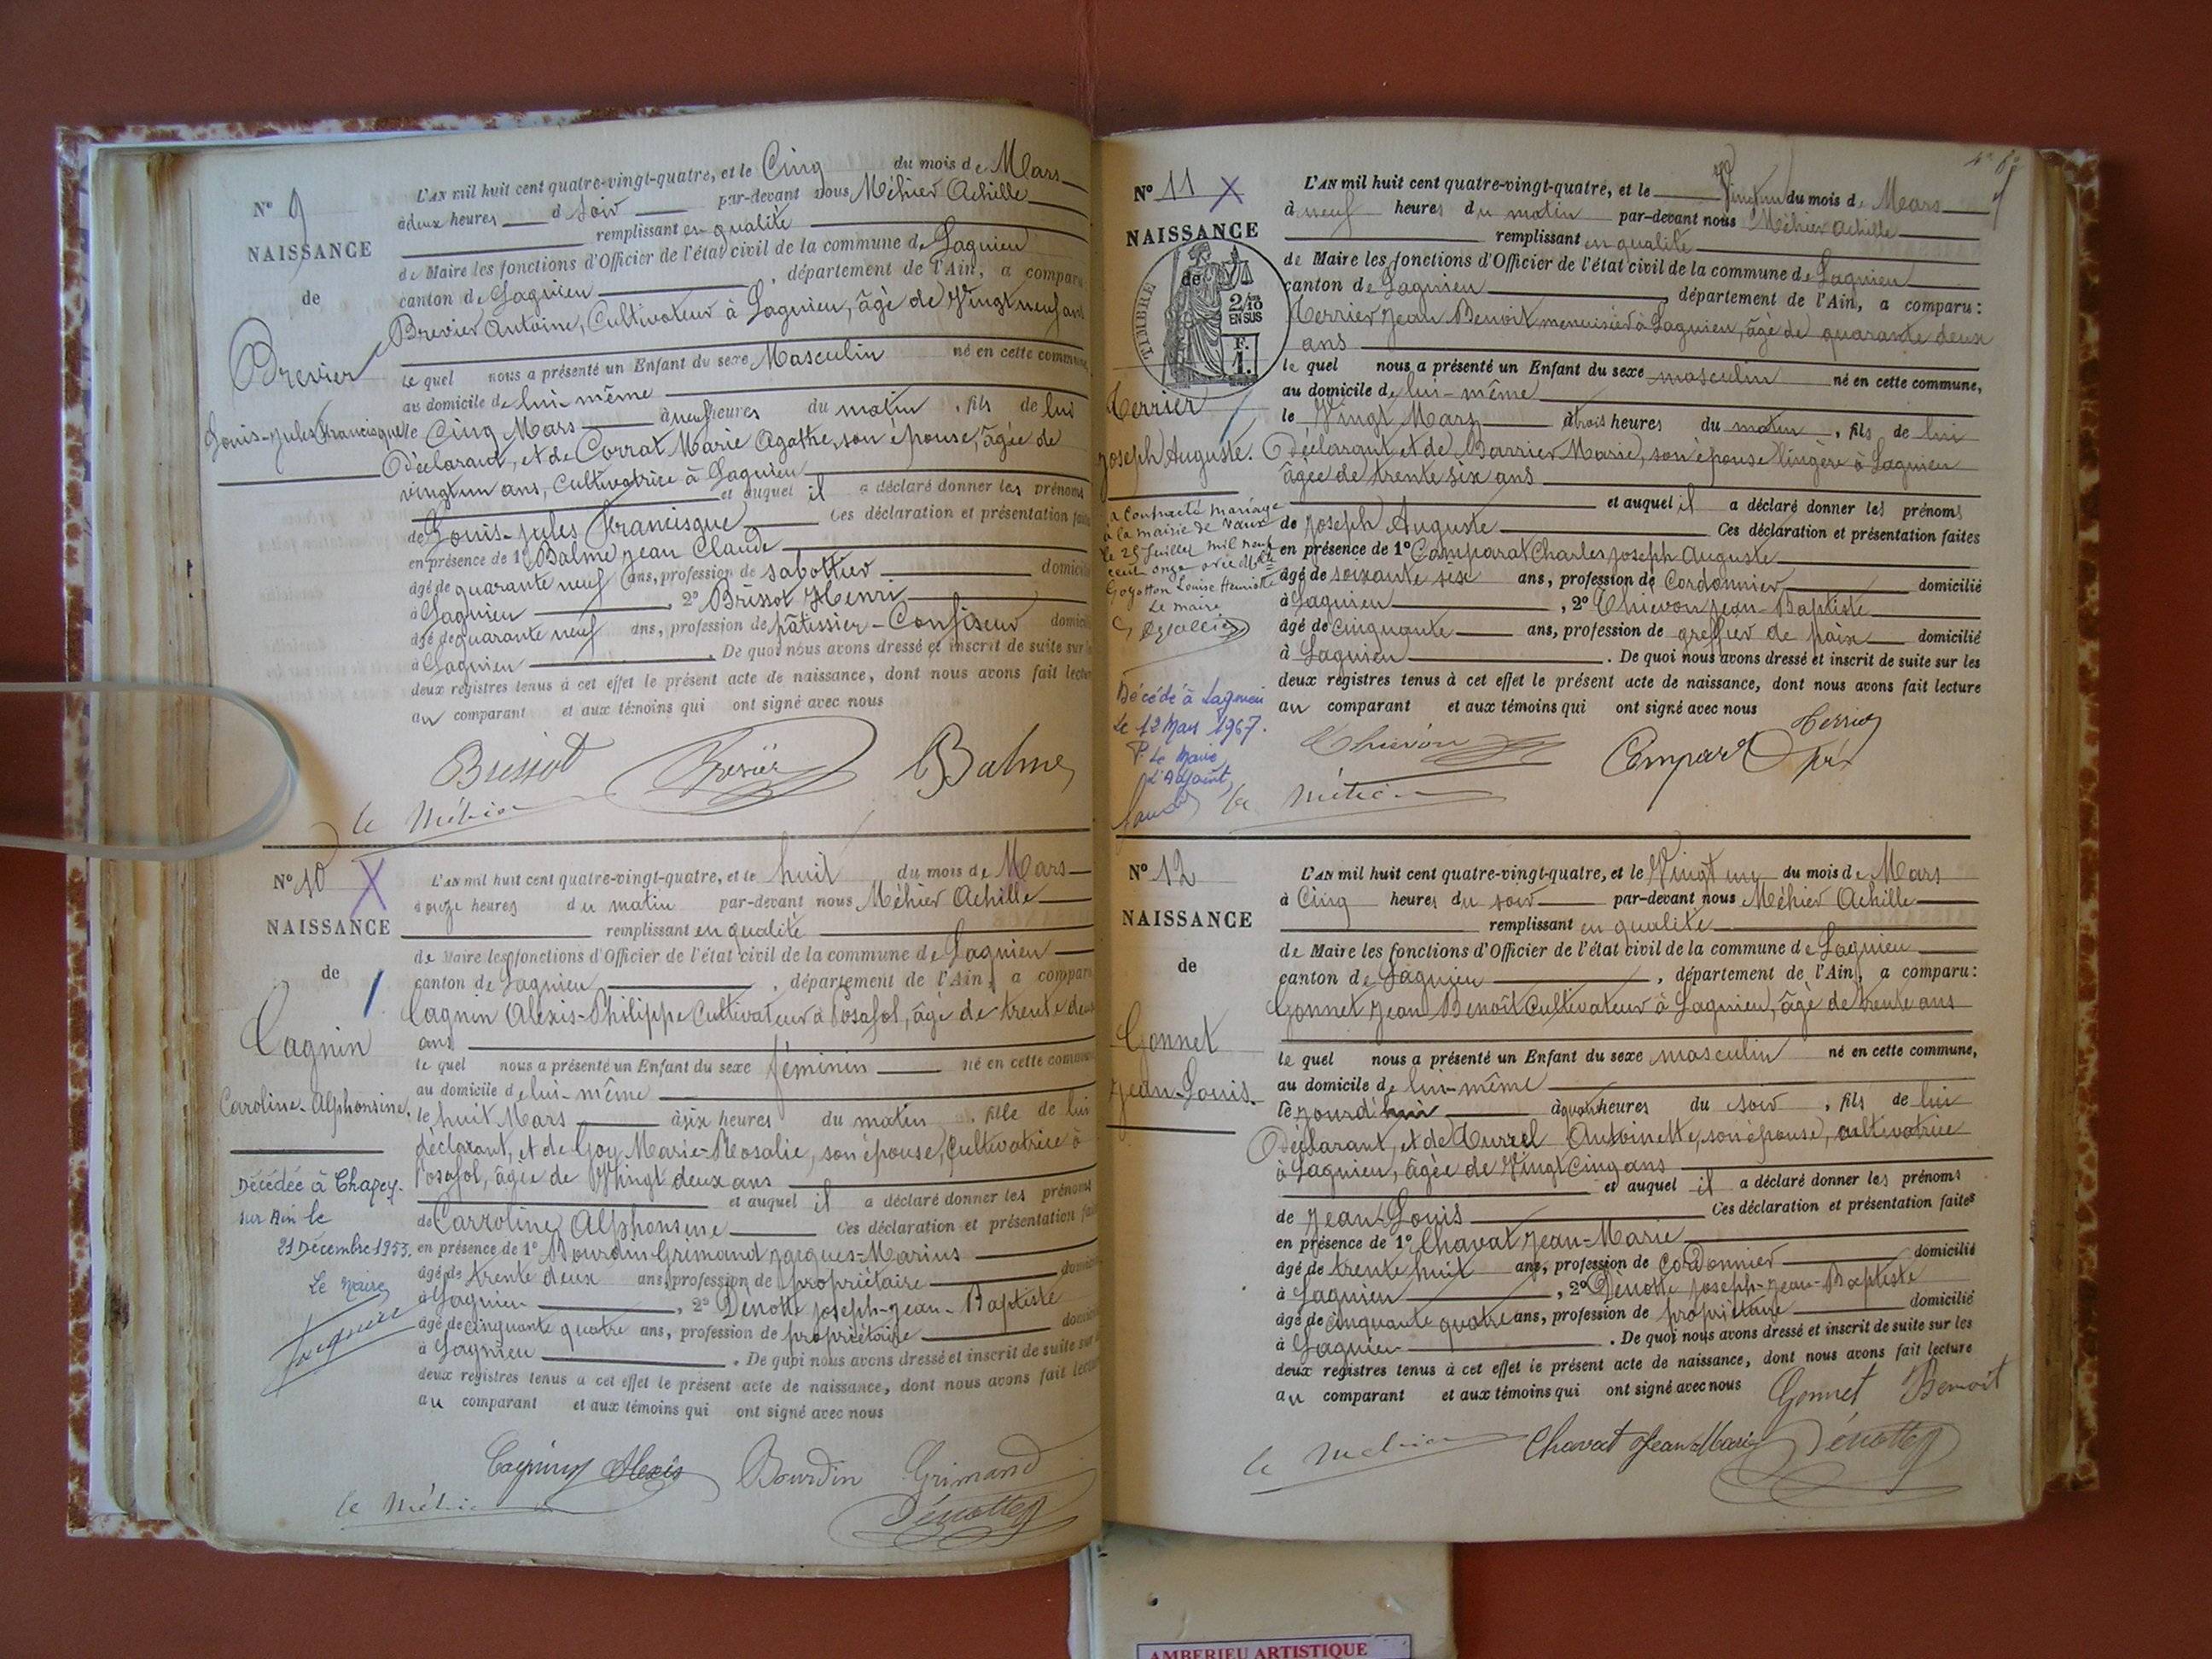 N° 9
NAISSANCE
de
Brevier
Louis-Jules Francisque
L'AN mil huit cent quatre-vingt-quatre, et le Cinq du mois de Mars
à deux heures d soir par-devant nous Méhier Achille
remplissant en qualité
de Maire les fonctions d'Officier de l'état civil de la commune de Lagnieu
canton de Lagnieu, département de l'Ain, a comparu
Brevier Antoine, Cultivateur à Lagnieu, âgé de Vingt neuf ans
le quel nous a présenté un Enfant du sexe Masculin né en cette commune,
au domicile de lui-même
le Cinq Mars à neuf heures du matin, fils de lui
Déclarant, et de Corrat Marie Agathe, son épouse, âgée de
vingt un ans, Cultivatrice à Lagnieu
et auquel il a déclaré donner les prénoms
de Louis-Jules Francisque Ces déclaration et présentation faites
en présence de 1° Balme Jean Claude
âgé de quarante neuf ans, profession de sabottier domicilié
à Lagnieu, 2° Brissot Henri
âgé de quarante neuf ans, profession de pâtissier-Confiseur domicilié
à Lagnieu. De quoi nous avons dressé et inscrit de suite sur les
deux registres tenus à cet effet le présent acte de naissance, dont nous avons fait lecture
au comparant et aux témoins qui ont signé avec nous
Brissot Brevier Balme
Méhier
N° 10 X
NAISSANCE
de
Cagnin
Caroline-Alphonsine.
Décédée à Chazey-
sur Ain le
21 Décembre 1953.
Le Maire
L'AN mil huit cent quatre-vingt-quatre, et le huit du mois de Mars
à onze heures du matin par-devant nous Méhier Achille
remplissant en qualité
de Maire les fonctions d'Officier de l'état civil de la commune de Lagnieu
canton de Lagnieu, département de l'Ain, a comparu
Cagnin Alexis-Philippe Cultivateur à Posafol, âgé de trente deux
ans
le quel nous a présenté un Enfant du sexe féminin né en cette commune
au domicile de lui-même
le huit Mars à six heures du matin, fille de lui
déclarant, et de Goy Marie-Rosalie, son épouse, Cultivatrice à
Posafol, âgée de Vingt deux ans
et auquel il a déclaré donner les prénoms
de Carroline Alphonsine Ces déclaration et présentation faites
en présence de 1° Bourdin Grimand Jacques-Marius
âgé de trente deux ans, profession de propriétaire domicilié
à Lagnieu, 2° Dénotte Joseph-Jean-Baptiste
âgé de cinquante quatre ans, profession de propriétaire domicilié
à Lagnieu. De quoi nous avons dressé et inscrit de suite sur les
deux registres tenus à cet effet le présent acte de naissance, dont nous avons fait lecture
au comparant et aux témoins qui ont signé avec nous
Cagnin Alexis Bourdin Grimand
Méhier Dénotte
N° 11 X
NAISSANCE
de
TIMBRE
2/10
EN SUS
F.
1.
Terrier
Joseph Auguste.
a Contracté mariage
à la mairie de Vaux
le 25 Juillet mil neuf
cent onze avec Melle
Goyatton Louise Henriette
Le maire
Décédé à Lagnieu
Le 12 Mars 1967.
P. Le Maire
L'Adjoint,
L'AN mil huit cent quatre-vingt-quatre, et le Vingt un du mois de Mars
à neuf heures du matin par-devant nous Méhier Achille
remplissant en qualité
de Maire les fonctions d'Officier de l'état civil de la commune de Lagnieu
canton de Lagnieu, département de l'Ain, a comparu:
Terrier Jean Benoit menuisier à Lagnieu, âgé de quarante deux
ans
le quel nous a présenté un Enfant du sexe masculin né en cette commune,
au domicile de lui-même
le Vingt Mars à trois heures du matin, fils de lui
Déclarant et de Barrier Marie, son épouse lingère à Lagnieu
âgée de trente six ans
et auquel il a déclaré donner les prénoms
de Joseph Auguste Ces déclaration et présentation faites
en présence de 1° Comparat Charles Joseph Auguste
âgé de soixante six ans, profession de Cordonnier domicilié
à Lagnieu, 2° Thievon Jean-Baptiste
âgé de Cinquante ans, profession de greffier de paix domicilié
à Lagnieu. De quoi nous avons dressé et inscrit de suite sur les
deux registres tenus à cet effet le présent acte de naissance, dont nous avons fait lecture
au comparant et aux témoins qui ont signé avec nous
Thievon Comparat Terrier
Méhier
N° 12
NAISSANCE
de
Gonnet
Jean-Louis.
L'AN mil huit cent quatre-vingt-quatre, et le Vingt un du mois de Mars
à Cinq heures du soir par-devant nous Méhier Achille
remplissant en qualité
de Maire les fonctions d'Officier de l'état civil de la commune de Lagnieu
canton de Lagnieu, département de l'Ain, a comparu:
Gonnet Jean Benoît Cultivateur à Lagnieu, âgé de trente ans
le quel nous a présenté un Enfant du sexe masculin né en cette commune,
au domicile de lui-même
le jourd'hui à quatre heures du soir, fils de lui
Déclarant, et de Turrel Antoinette, son épouse, cultivatrice
à Lagnieu, âgée de Vingt Cinq ans
et auquel il a déclaré donner les prénoms
de Jean-Louis Ces déclaration et présentation faites
en présence de 1° Chavat Jean-Marie
âgé de trente huit ans, profession de Cordonnier domicilié
à Lagnieu, 2° Dénotte Joseph-Jean-Baptiste
âgé de cinquante quatre ans, profession de propriétaire domicilié
à Lagnieu. De quoi nous avons dressé et inscrit de suite sur les
deux registres tenus à cet effet le présent acte de naissance, dont nous avons fait lecture
au comparant et aux témoins qui ont signé avec nous Gonnet Benoit
Méhier Chavat Jean Marie Dénotte
AMBERIEU ARTISTIQUE